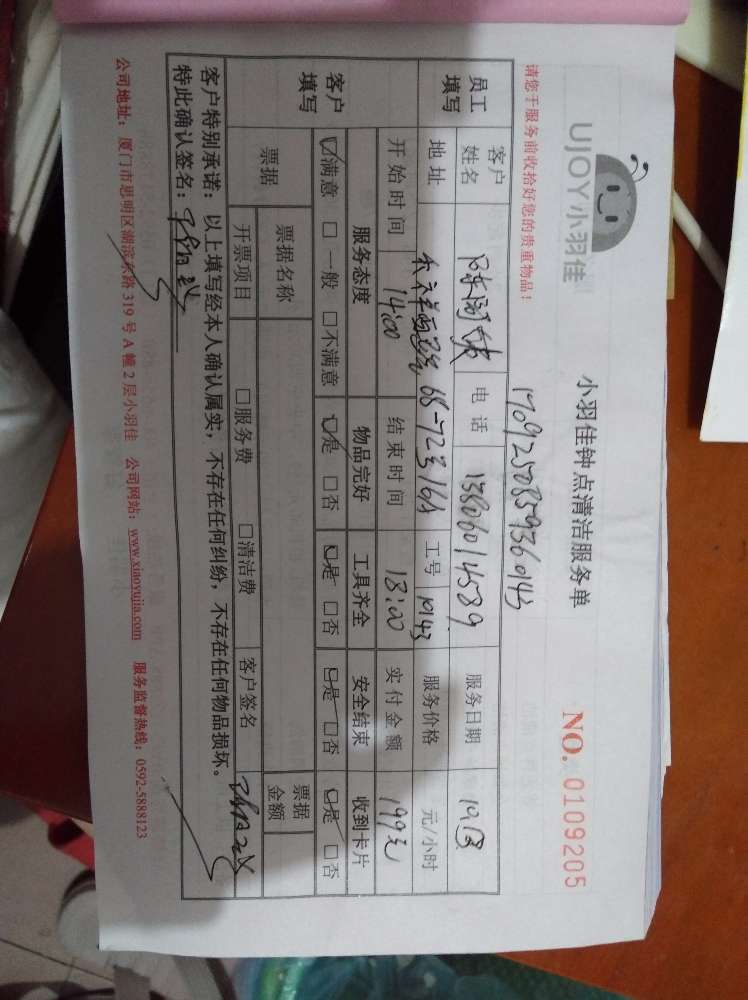 UJOY小羽佳
小羽佳钟点清洁服务单
NO. 0109205
请您于服务前收拾好您的贵重物品！
员工填写
客户姓名
电话 13806014589
服务日期
地址
68-72号
工号 1043
服务价格 元/小时
开始时间 14:00
结束时间 18:00
实付金额 199元
客户填写
服务态度 物品完好 工具齐全 安全结束 收到卡片
☑满意 □一般 □不满意 ☑是 □否 ☑是 □否 ☑是 □否 ☑是 □否
票据 票据名称 票据金额
开票项目 □服务费 □清洁费 客户签名
客户特别承诺：以上填写经本人确认属实，不存在任何纠纷，不存在任何物品损坏。
特此确认签名：
公司地址：厦门市思明区湖滨东路 319 号 A 幢 2 层小羽佳 公司网站：www.xiaoyujia.com 服务监督热线：0592-5888123